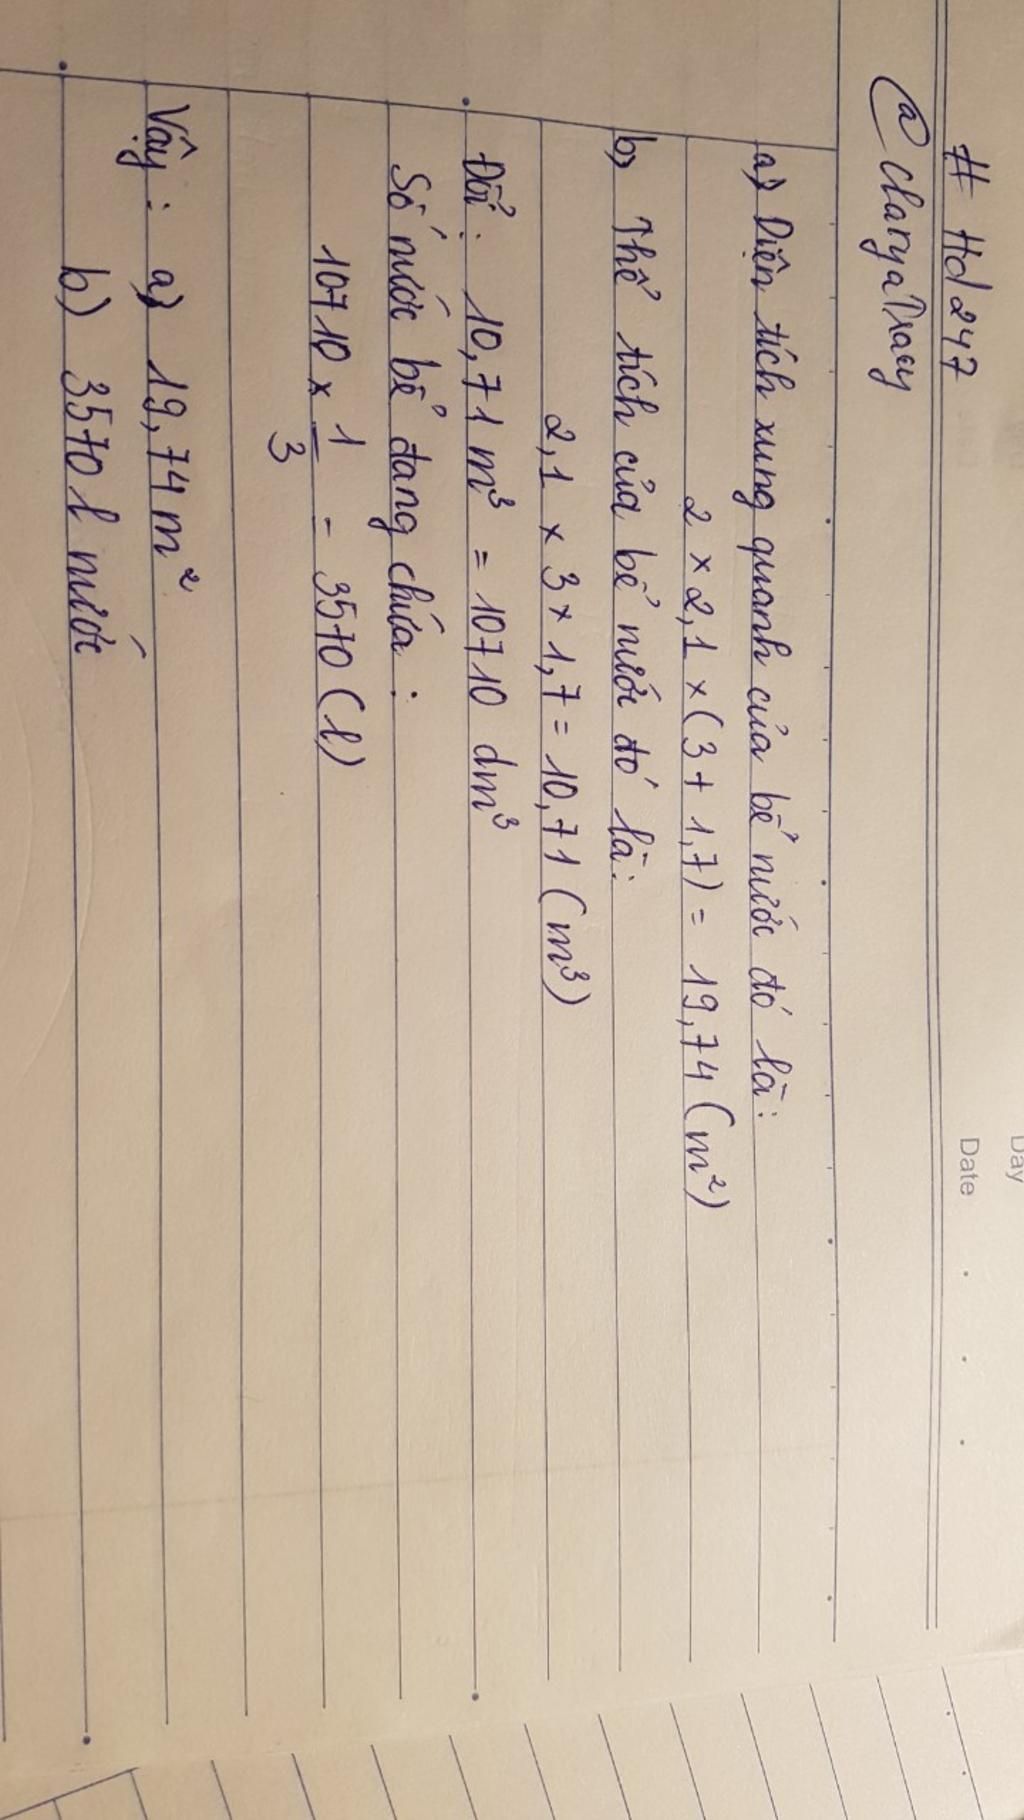 # Hd247
@ClaryaTracy
Day
Date
a) Diện tích xung quanh của bể nước đó là:
2 × 2,1 × (3 + 1,7) = 19,74 (m²)
b) Thể tích của bể nước đó là:
2,1 × 3 × 1,7 = 10,71 (m³)
Đổi: 10,71 m³ = 10710 dm³
Số nước bể đang chứa:
10710 × 1/3 = 3570 (l)
Vậy: a) 19,74 m²
b) 3570 l nước